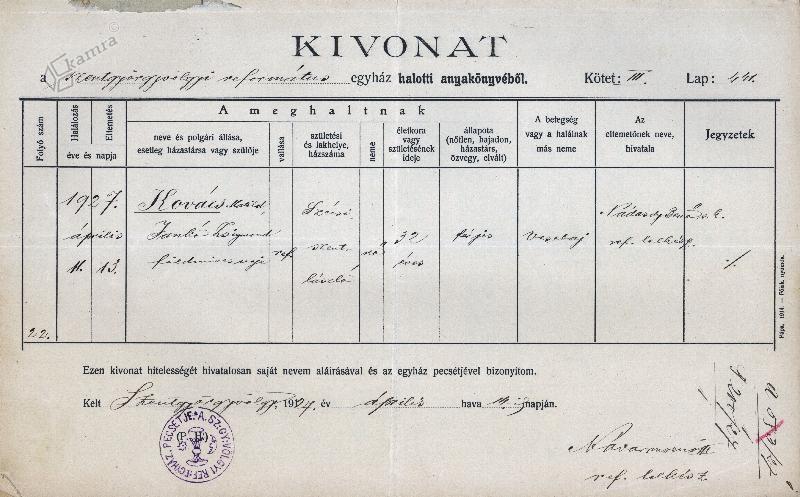 kamra
KIVONAT
a Szentgyörgyvölgyi református egyház halotti anyakönyvéből. Kötet: III. Lap: 441.
Folyó szám
Halálozás
Eltemetés
éve és napja
A meghaltnak
neve és polgári állása,
esetleg házastársa vagy szülője
vallása
születési
és lakhelye,
házszáma
neme
életkora
vagy
születésének
ideje
állapota
(nőtlen, hajadon,
házastárs,
özvegy, elvált)
A betegség
vagy a halálnak
más neme
Az
eltemetőnek neve,
hivatala
Jegyzetek
22.
1927.
április
11. 13.
Kovács
Jankó Zsigmond
földmíves neje
ref.
Szécsi
szent
László
nő
32
éves
férjes
Vesebaj
Nádasdy
ref. lelkész
Pápa, 1914. — Főisk. nyomda.
Ezen kivonat hitelességét hivatalosan saját nevem aláirásával és az egyház pecsétjével bizonyitom.
Kelt Szentgyörgyvölgy, 1927. év április hava napján.
(P. H.)
PECSÉTJE. A SZ.GY.VÖLGYI REF. EGYHÁZ
ref. lelkész